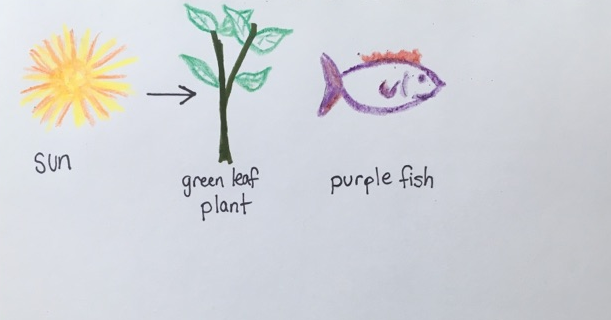 sun
green leaf
plant
purple fish